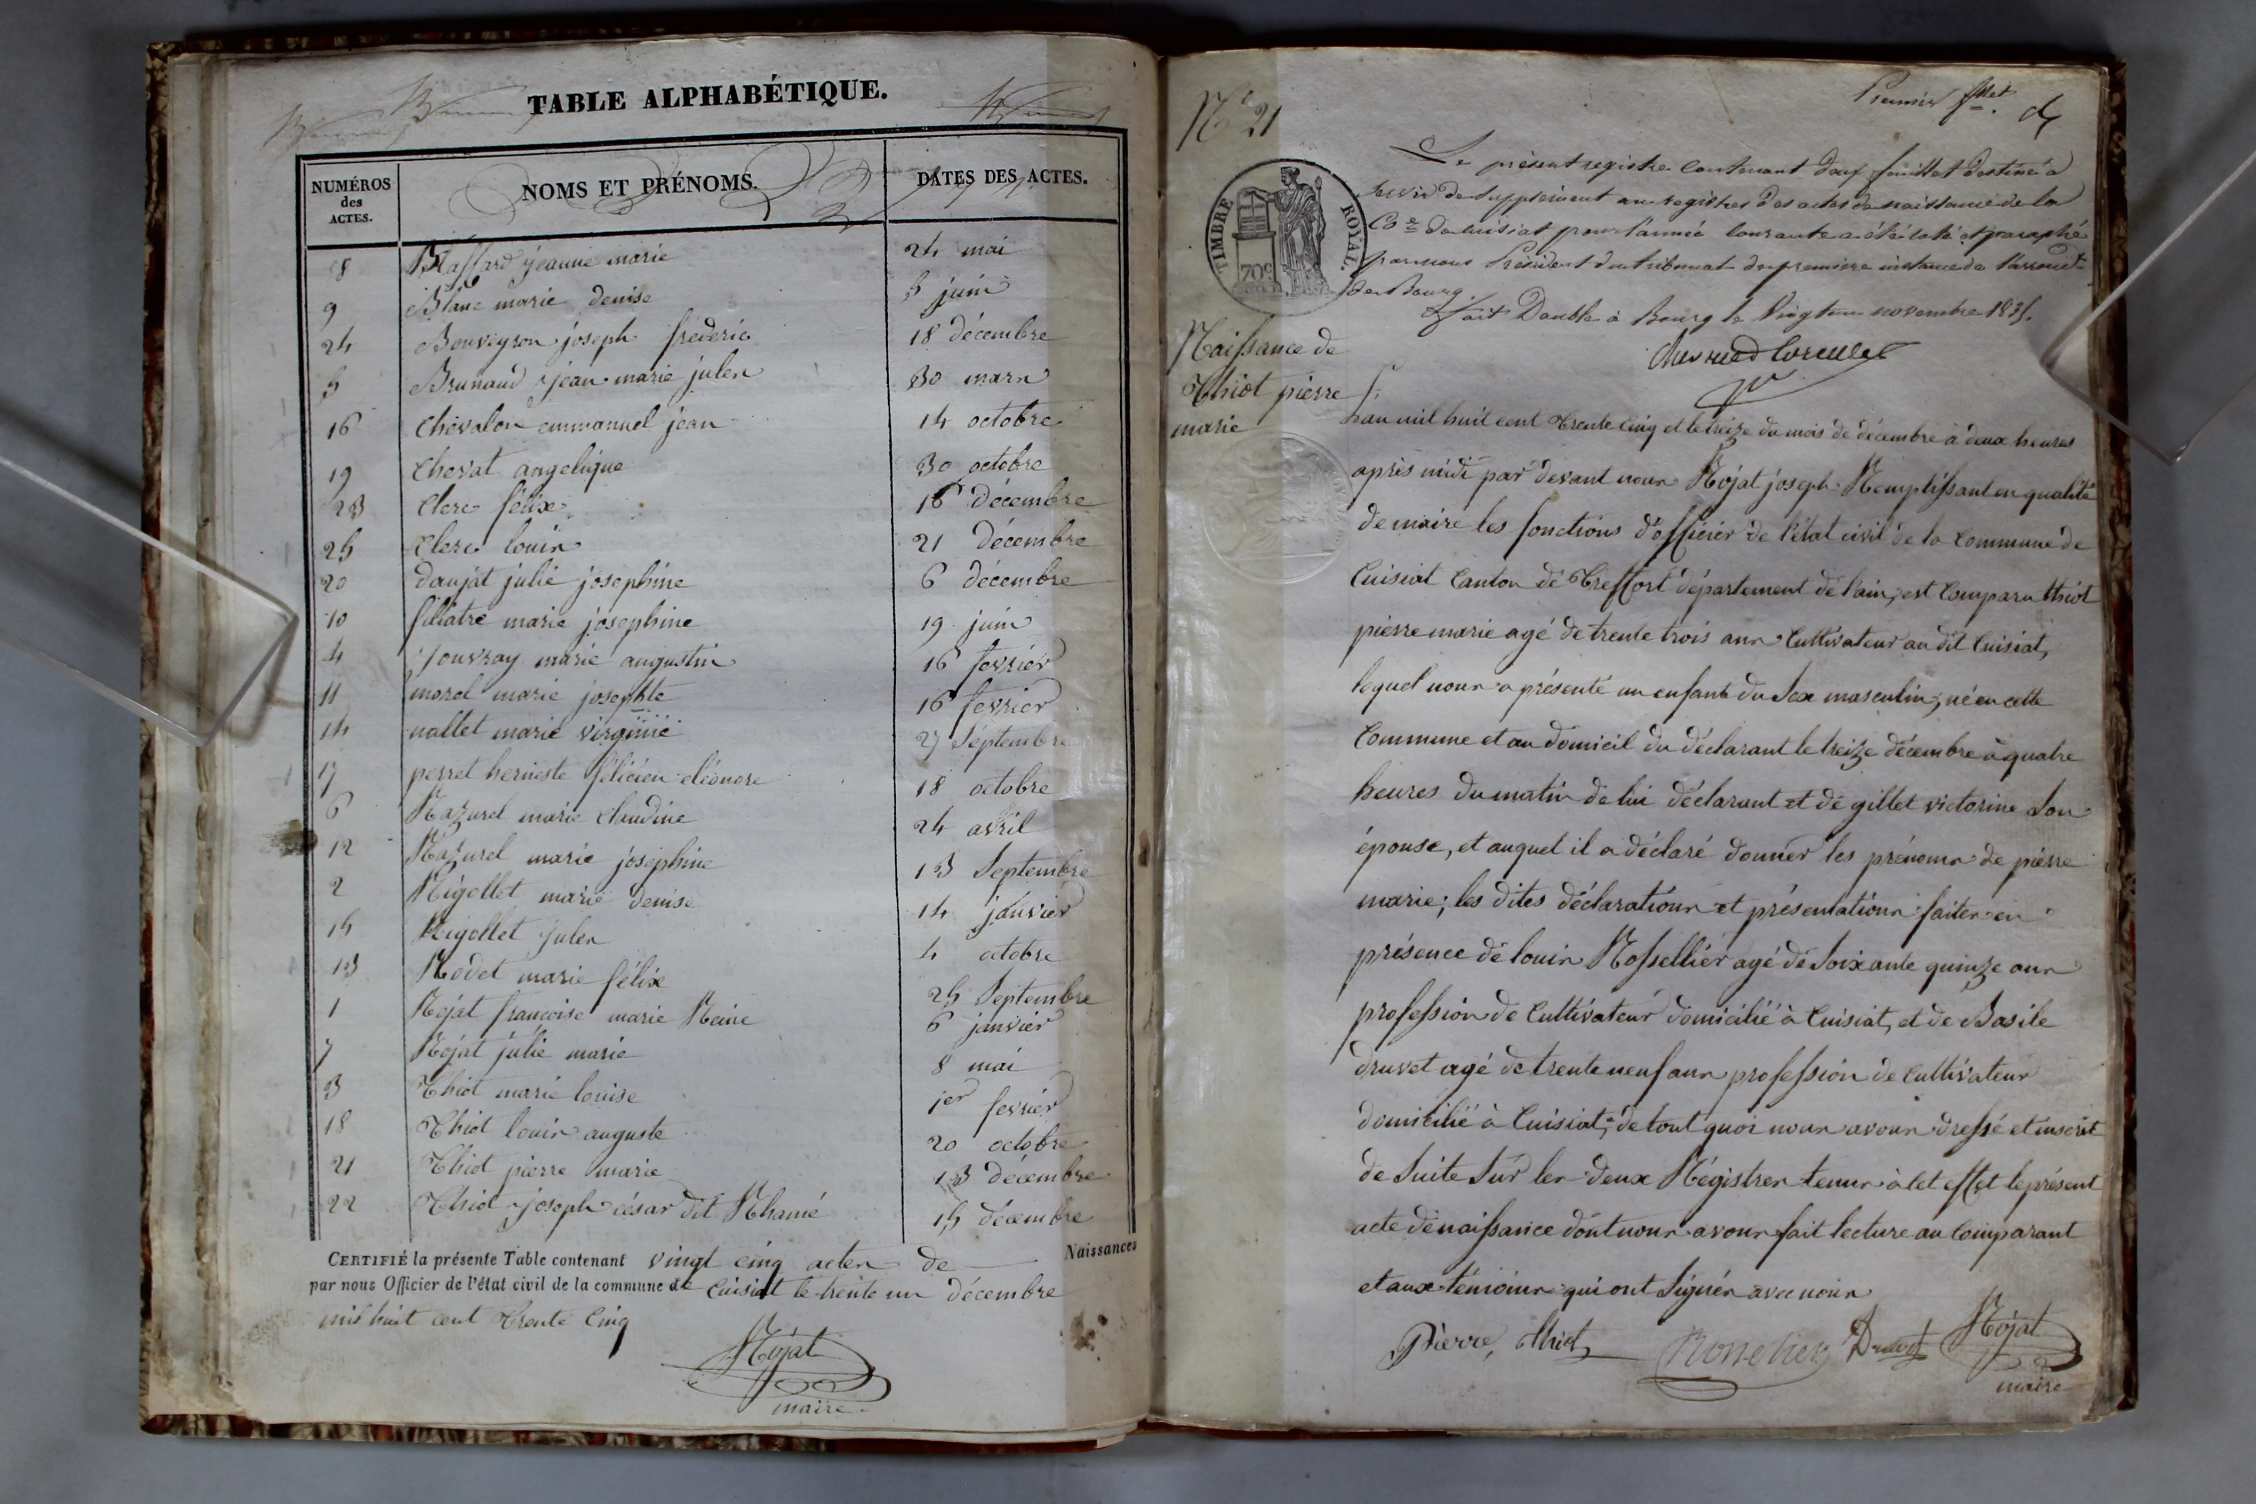 TABLE ALPHABÉTIQUE.
NUMÉROS des ACTES. NOMS ET PRÉNOMS. DATES DES ACTES.
8 Blaffard jeanne marie 24 mai
9 Blanc marie denise 5 juin
24 Bouveyron joseph frederic 18 décembre
5 Brunaud jean marie jules 30 mars
16 Chevalon emmanuel jean 14 octobre
19 Chevat angelique 30 octobre
23 Clerc félix 16 décembre
25 Clerc louis 21 décembre
20 daujat julie josephine 6 décembre
10 filliatre marie josephine 19 juin
4 jouvray marie augustin 16 fevrier
11 morel marie josephte 16 fevrier
14 nallet marie virginie 27 Septembre
17 perret herneste félicien eléonore 18 octobre
6 Mazurel marie claudine 24 avril
12 Mazurel marie josephine 13 Septembre
2 Rigollet marie denise 14 janvier
15 Rigollet jules 4 octobre
13 Rodet marie félix 25 Septembre
1 Rojat françoise marie Reine 6 janvier
7 Rojat julie marie 8 mai
3 Thiot marie louise 1er fevrier
18 Thiot louis auguste 20 octobre
21 Thiot pierre marie 13 décembre
22 Thiot joseph césar dit Rhamé 15 décembre
CERTIFIÉ la présente Table contenant vingt cinq actes de Naissances
par nous Officier de l'état civil de la commune de Cuisiat le trente un décembre
mil huit cent Trente Cinq
Rojat
maire
Premier fllet
N° 21
Le présent registre contenant deux feuillet destiné à
servir de supplément aux registres des actes de naissance de la
Cne de Cuisiat pour l'année courante a été coté et paraphé
par nous Président du tribunal de première instance de l'arrondt
de Bourg.
fait Double à Bourg le Vingt novembre 1835.
TIMBRE ROYAL.
70c
Naissance de
Thiot pierre
marie
L'an mil huit cent trente cinq et le treize du mois de décembre à deux heures
après midi par devant nous Rojat joseph Remplissant en qualité
de maire les fonctions d'officier de l'état civil de la Commune de
Cuisiat Canton de Treffort département de l'ain, est Comparu thiot
pierre marie agé de trente trois ans Cultivateur au dit Cuisiat,
lequel nous a présenté un enfant du Sex masculin, né en cette
Commune et au domicil du déclarant le treize décembre à quatre
heures du matin de lui déclarant et de gillet victorine Son
épouse, et auquel il a déclaré donner les prénoms de pierre
marie; les dites déclarations et présentations faites en
présence de louis Rossellier agé de Soixante quinze ans
profession de Cultivateur domicilié à Cuisiat, et de Basile
druvet agé de trente neuf ans profession de Cultivateur
domicilié à Cuisiat; de tout quoi nous avons dressé et inscrit
de Suite Sur les deux Régistres tenus à cet effet le présent
acte de naissance dont nous avons fait lecture au Comparant
et aux témoins qui ont Signés avec nous
Pierre, thiot Rosselier Druvet Rojat
maire